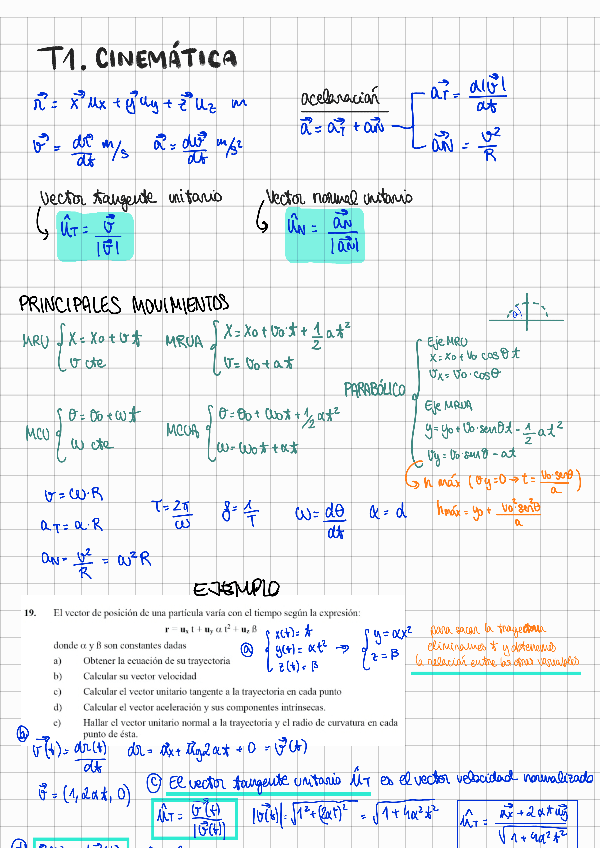 T1. CINEMÁTICA
r⃗ = x⃗ ux + y⃗ uy + z⃗ uz m
v⃗ = dr⃗/dt m/s a⃗ = dv⃗/dt m/s²
aceleración
a⃗ = a⃗T + a⃗N
a⃗T = d|v⃗|/dt
a⃗N = v²/R
Vector tangente unitario
ûT = v⃗/|v⃗|
Vector normal unitario
ûN = a⃗N/|a⃗N|
PRINCIPALES MOVIMIENTOS
MRU { x = x0 + v t
v cte
MRUA { x = x0 + v0 t + 1/2 a t²
v = v0 + a t
PARABÓLICO
Eje MRU
x = x0 + v0 cosθ t
vx = v0 · cosθ
Eje MRUA
y = y0 + v0 · senθ t - 1/2 a t²
vy = v0 · senθ - at
h máx (vy = 0 → t = v0 · senθ/a)
hmáx = y0 + v0² · sen²θ/a
MCU { θ = θ0 + ω t
ω cte
MCUA { θ = θ0 + ω0 t + 1/2 α t²
ω = ω0 t + α t
v = ω · R
aT = α · R
aN = v²/R = ω² R
T = 2π/ω f = 1/T ω = dθ/dt α = d
EJEMPLO
19. El vector de posición de una partícula varía con el tiempo según la expresión:
r = ux t + uy α t² + uz β
donde α y β son constantes dadas
a) Obtener la ecuación de su trayectoria
b) Calcular su vector velocidad
c) Calcular el vector unitario tangente a la trayectoria en cada punto
d) Calcular el vector aceleración y sus componentes intrínsecas.
e) Hallar el vector unitario normal a la trayectoria y el radio de curvatura en cada
punto de ésta.
a) { x(t) = t
y(t) = α t²
z(t) = β
→ { y = α x²
z = β
para sacar la trayectoria
eliminamos t y obtenemos
la relación entre las otras variables
b) v⃗(t) = dr⃗(t)/dt dr = u⃗x + u⃗y 2αt + 0 = v⃗(t)
v⃗ = (1, 2αt, 0)
c) El vector tangente unitario ûT es el vector velocidad normalizado
ûT = v⃗(t)/|v⃗(t)| |v⃗(t)| = √1² + (2αt)² = √1 + 4α²t² ûT = u⃗x + 2αt u⃗y/√1 + 4α²t²
d)